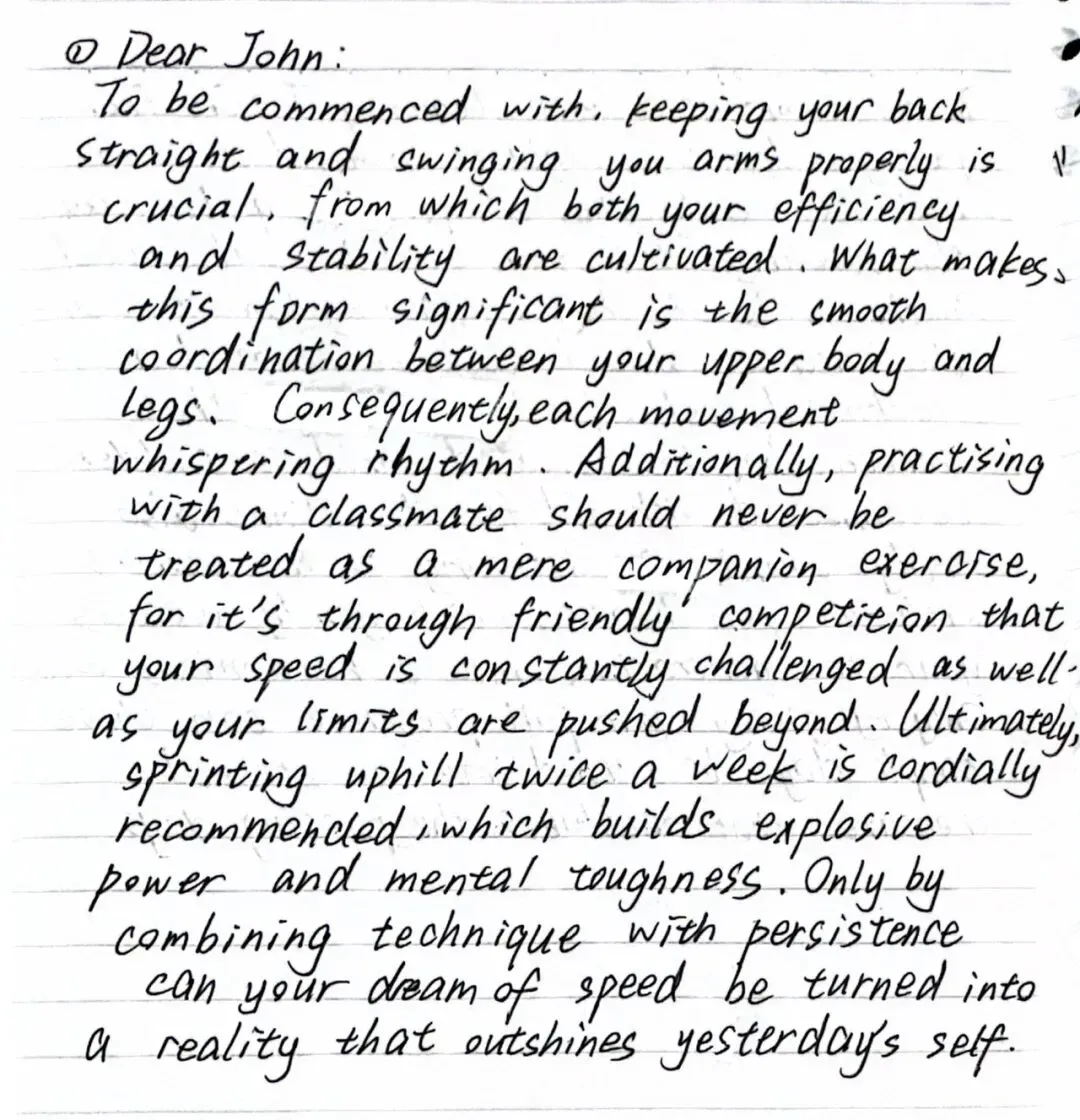 ① Dear John:
To be commenced with, keeping your back
straight and swinging you arms properly is
crucial, from which both your efficiency
and stability are cultivated. What makes
this form significant is the smooth
coordination between your upper body and
legs. Consequently, each movement
whispering rhythm. Additionally, practising
with a classmate should never be
treated as a mere companion exercise,
for it's through friendly competition that
your speed is constantly challenged as well
as your limits are pushed beyond. Ultimately,
sprinting uphill twice a week is cordially
recommended, which builds explosive
power and mental toughness. Only by
combining technique with persistence
can your dream of speed be turned into
a reality that outshines yesterday's self.